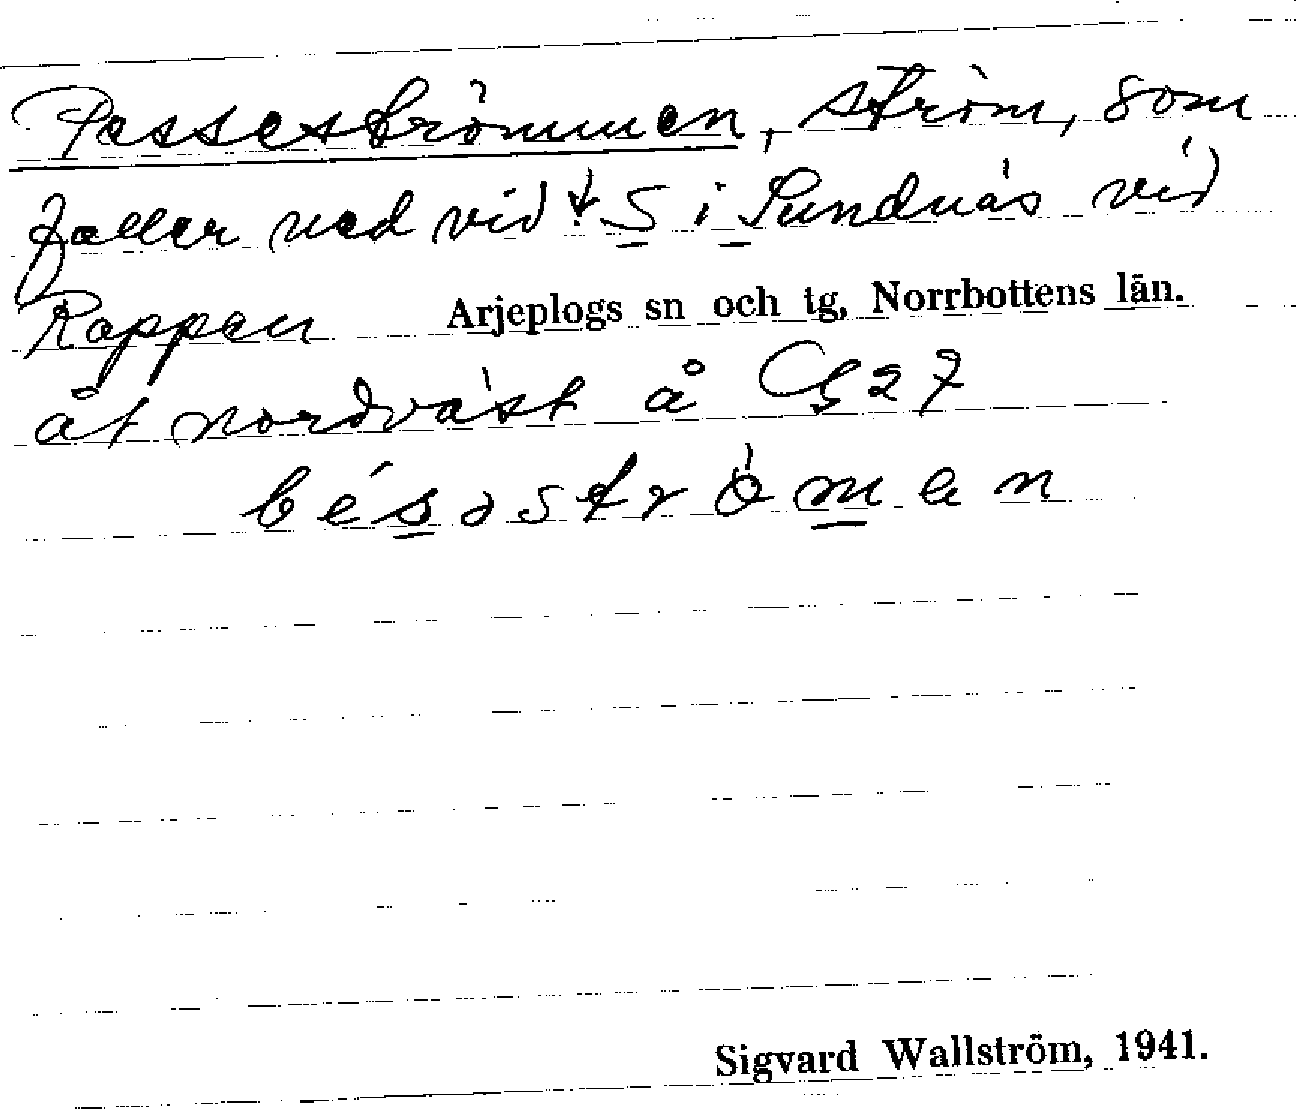 Pessesströmmen, ström, som
faller ned vid S i Sundnäs vid
Rappen Arjeplogs sn och tg, Norrbottens län.
åt nordväst å G 27
bésəströmen
Sigvard Wallström, 1941.